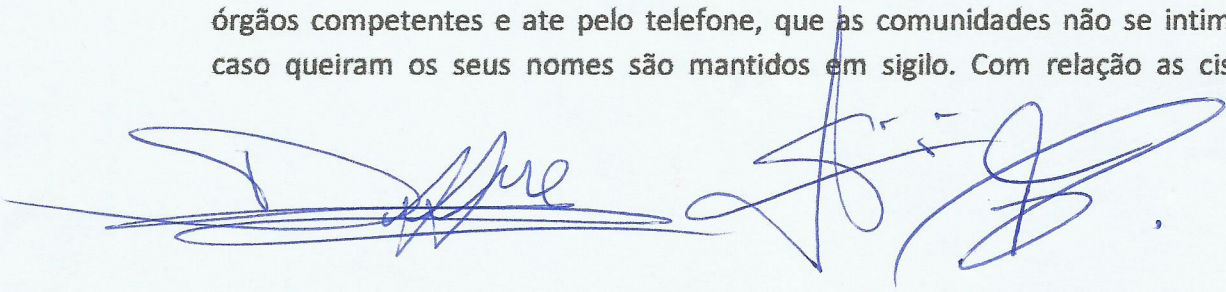 órgãos competentes e ate pelo telefone, que as comunidades não se intim
caso queiram os seus nomes são mantidos em sigilo. Com relação as cis